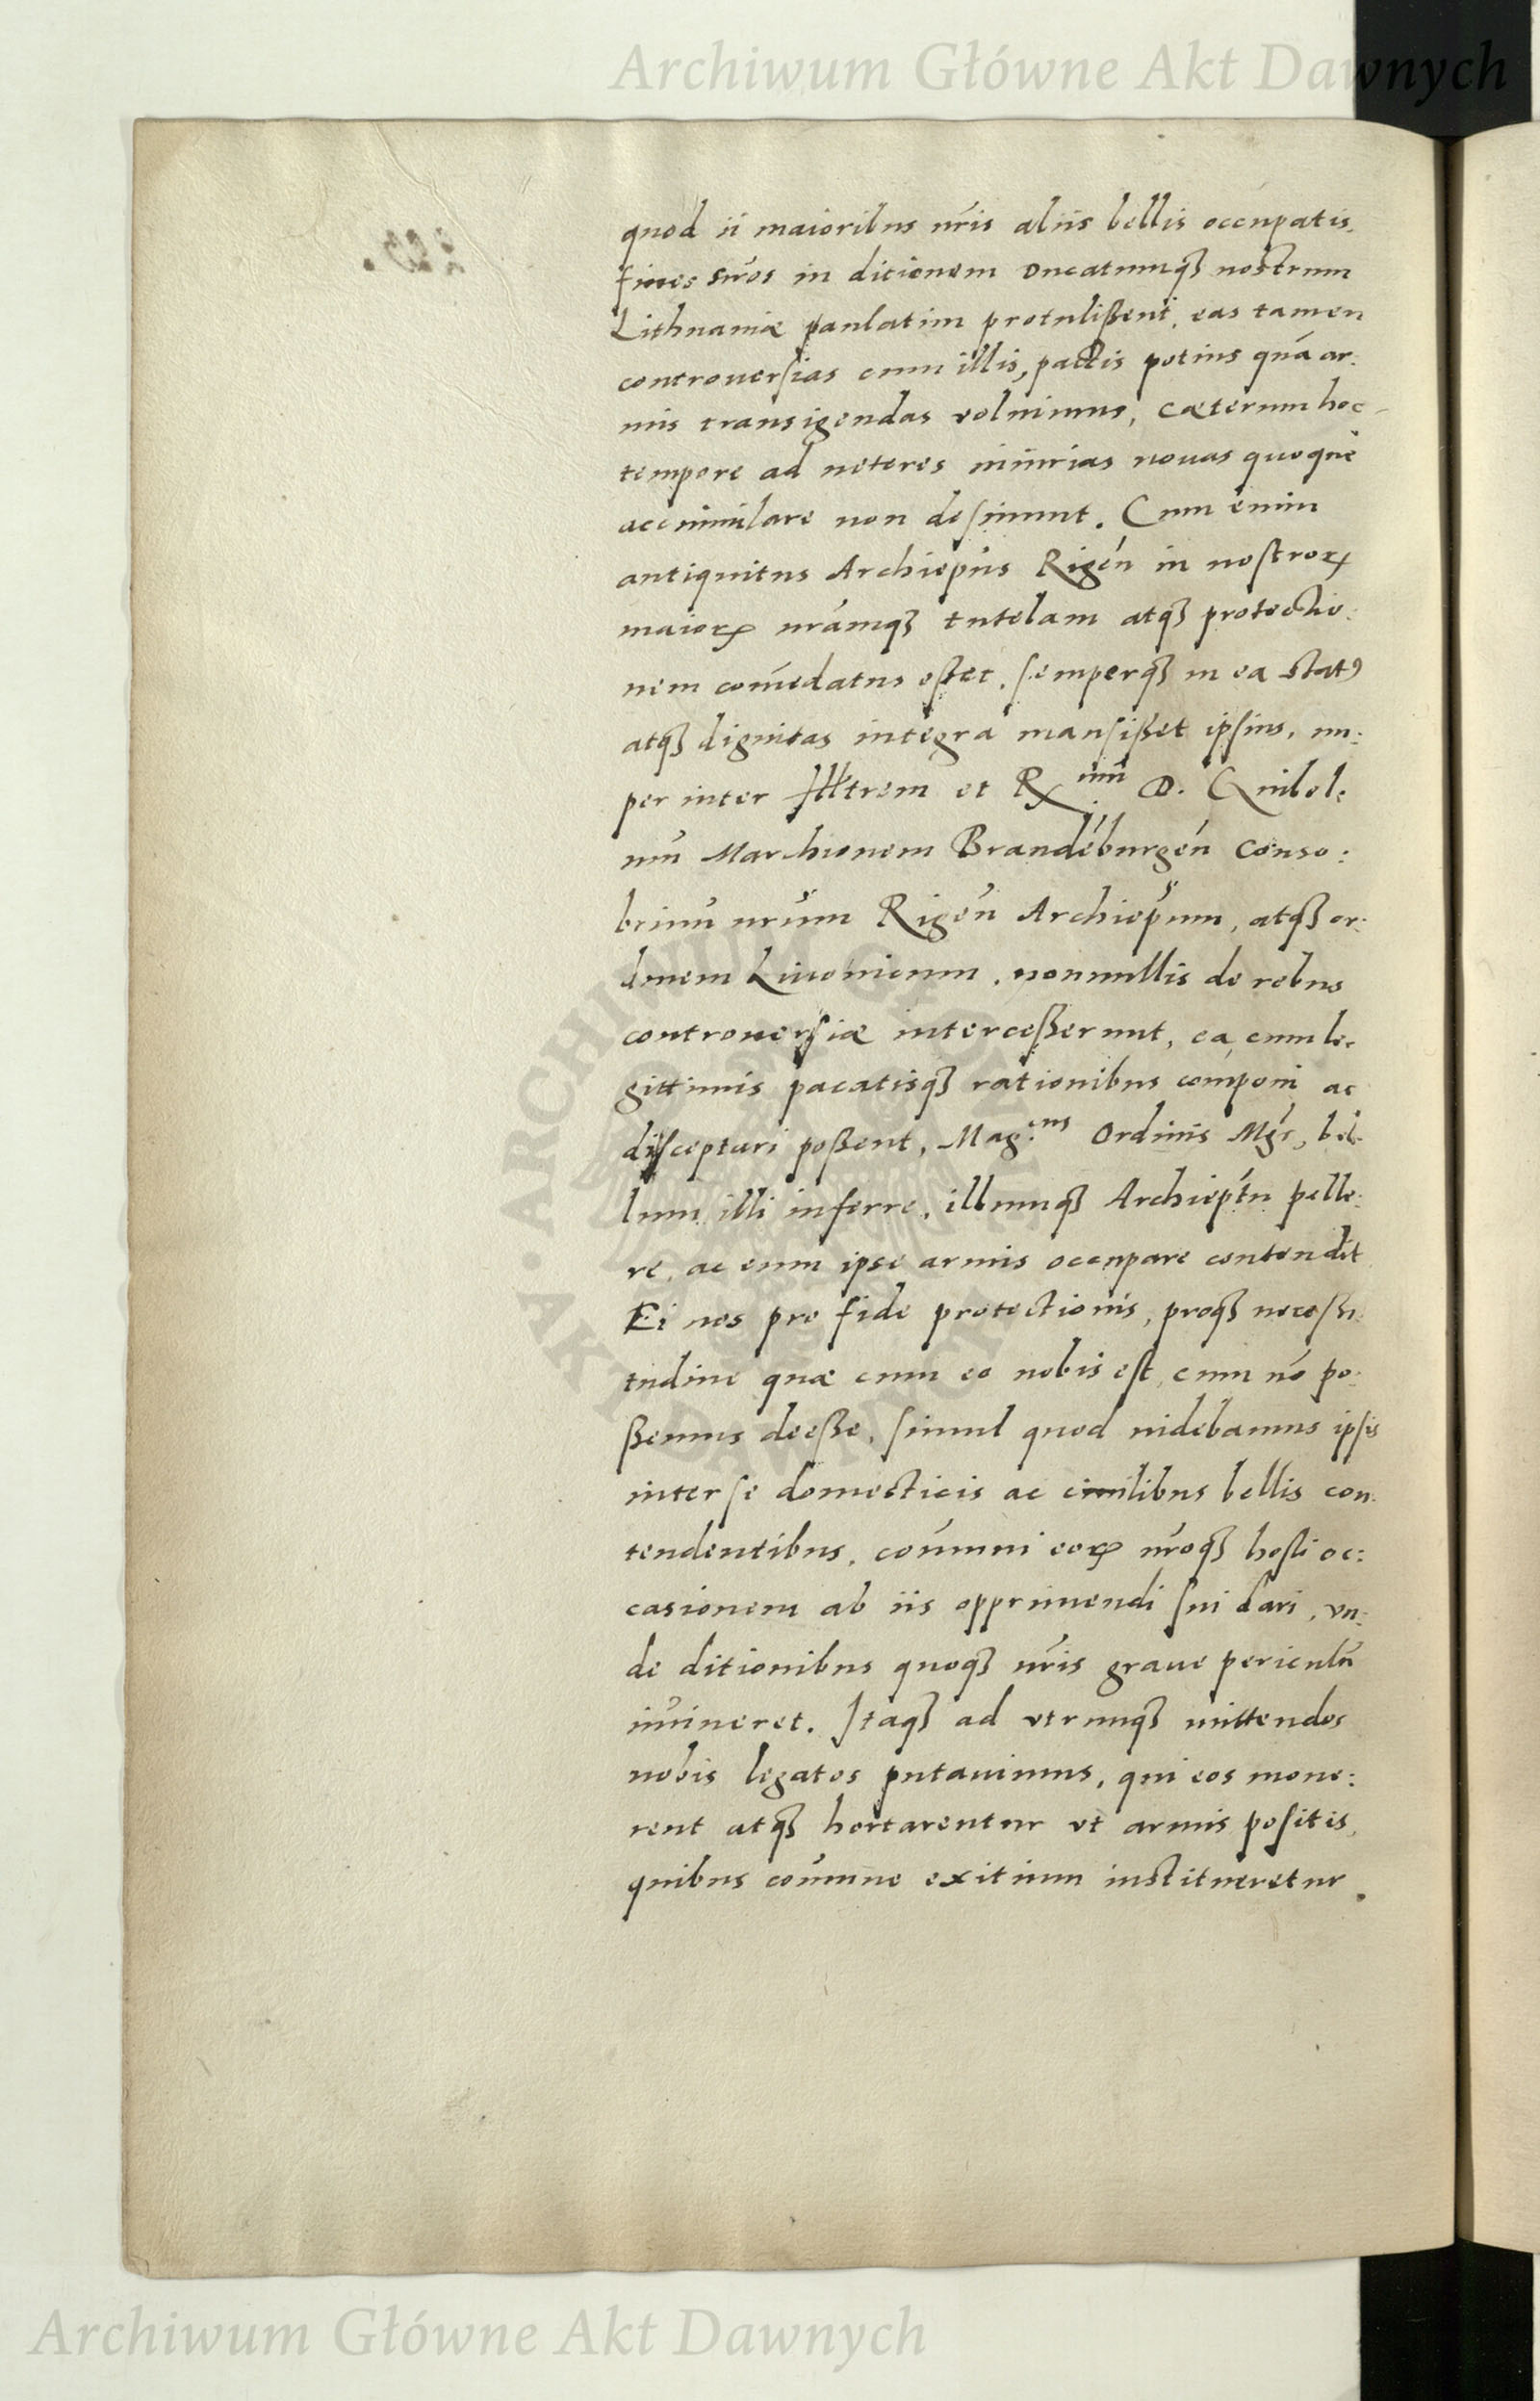 Archiwum Główne Akt Dawnych
quod ii maioribus nr̃is aliis bellis occupatis,
fines suos in dicionem Ducatumq₃ nostrum
Lithuaniæ paulatim protulißent, eas tamen
controuersias cum illis, pactis potius quã ar:
mis transigendas voluimus, Cæterum hoc
tempore ad ueteres iniurias nouas quoque
accumulare non desinunt. Cum enim
antiquitus Archiepũs Rigeñ in nostroꝝ
maioꝝ nrãmq₃ tutelam atq₃ protectio:
nem com̃edatus eßet, semperq₃ in ea statꝰ
atq₃ dignitas integra mansißet ipsius, nu:
per inter Illtrem et R. mũ D. Guilel:
mũ Marchionem Brandẽburgeñ Conso:
brinũ nrũm Rigeñ Archiep̃um, atq₃ or:
dinem Liuonicum, nonnullis de rebus
controuersiæ interceßerunt, ea cum le:
gittimis pacatisq₃ rationibus componi ac
disceptari poßent, Mag:cus Ordinis Mgr̃, bel:
lum illi inferre, illumq₃ Archiep̃tu pelle:
re, ac eum ipse armis occupare contendit
Ei nos pro fide protectionis, proq₃ neceßi:
tudine quæ cum eo nobis est, cum nõ po:
ßemus deeße, simul quod uidebamus ipsis
inter se domesticis ac ciuilibus bellis con:
tendentibus, com̃uni eoꝝ nr̃oq₃ hosti oc:
casionem ab iis opprimendi sui dari, vn:
de ditionibus quoq₃ nr̃is graue periculũ
im̃ineret. Itaq₃ ad vtrunq₃ mittendos
nobis legatos putauimus, qui eos mone:
rent atq₃ hortarentur vt armis positis,
quibus com̃une exitium institueretur.
ARCHIWUM GŁÓWNE
AKT DAWNYCH
Archiwum Główne Akt Dawnych